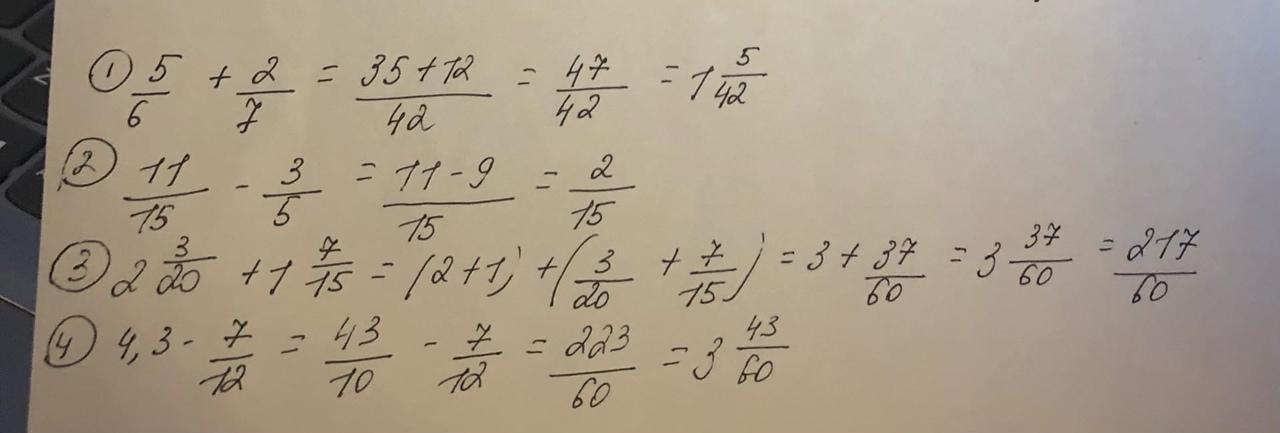 ① 5/6 + 2/7 = (35+12)/42 = 47/42 = 1 5/42
② 11/15 - 3/5 = (11-9)/15 = 2/15
③ 2 3/20 + 1 7/15 = (2+1) + (3/20 + 7/15) = 3 + 37/60 = 3 37/60 = 217/60
④ 4,3 - 7/12 = 43/10 - 7/12 = 223/60 = 3 43/60